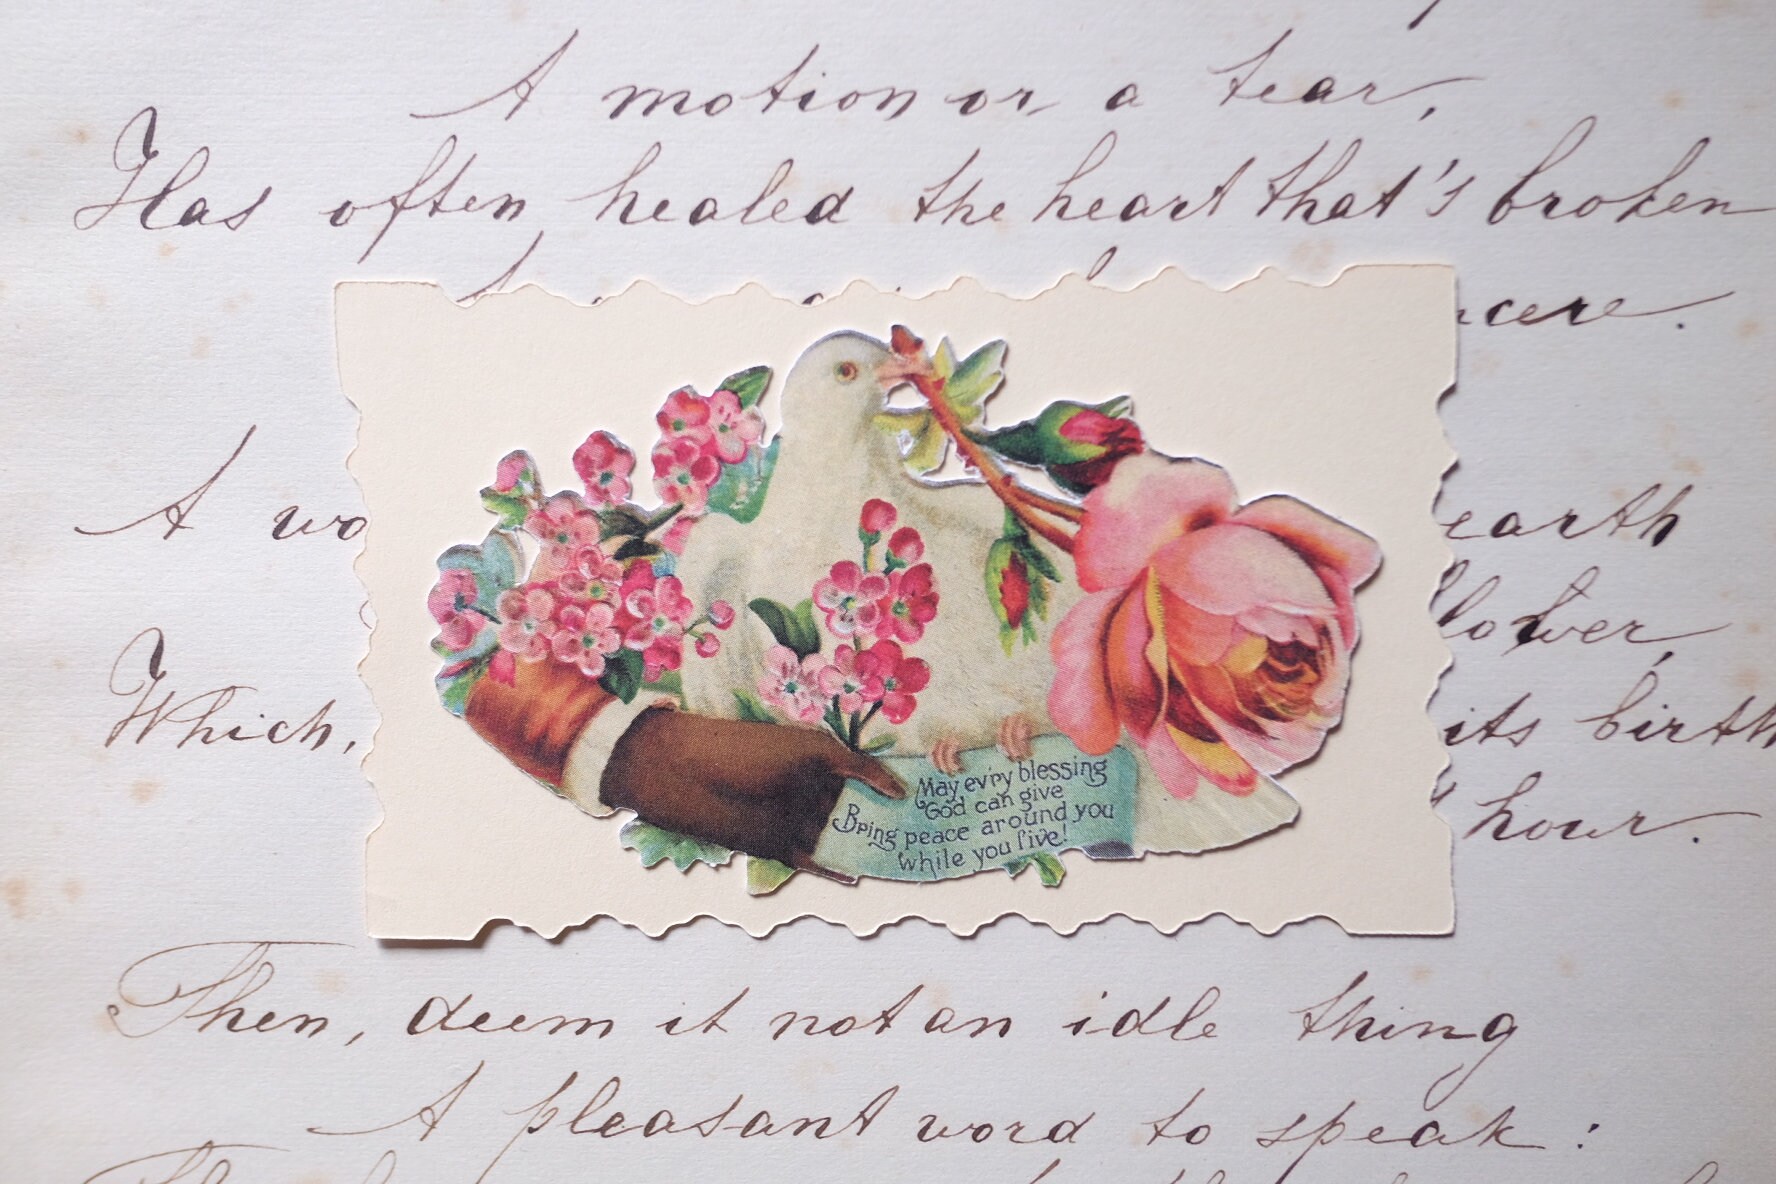 A motion or a tear,
Has often healed the heart that's broken
A wo
earth
Which,
its birth
hour.
May ev'ry blessing
God can give
Bring peace around you
while you live!
Then, deem it not an idle thing
A pleasant word to speak: